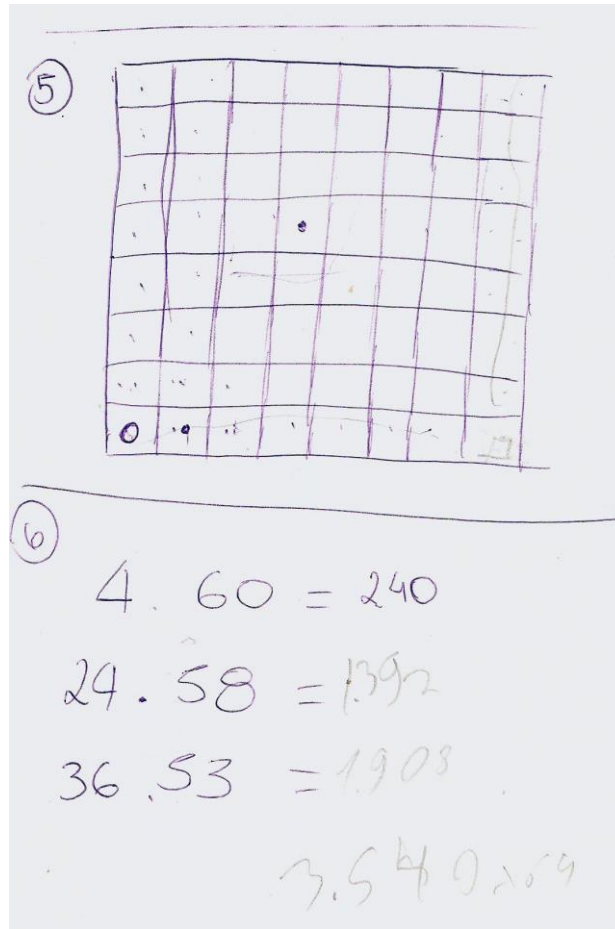 5
6
4 . 60 = 240
24 . 58 = 1392
36 . 53 = 1908
3.540